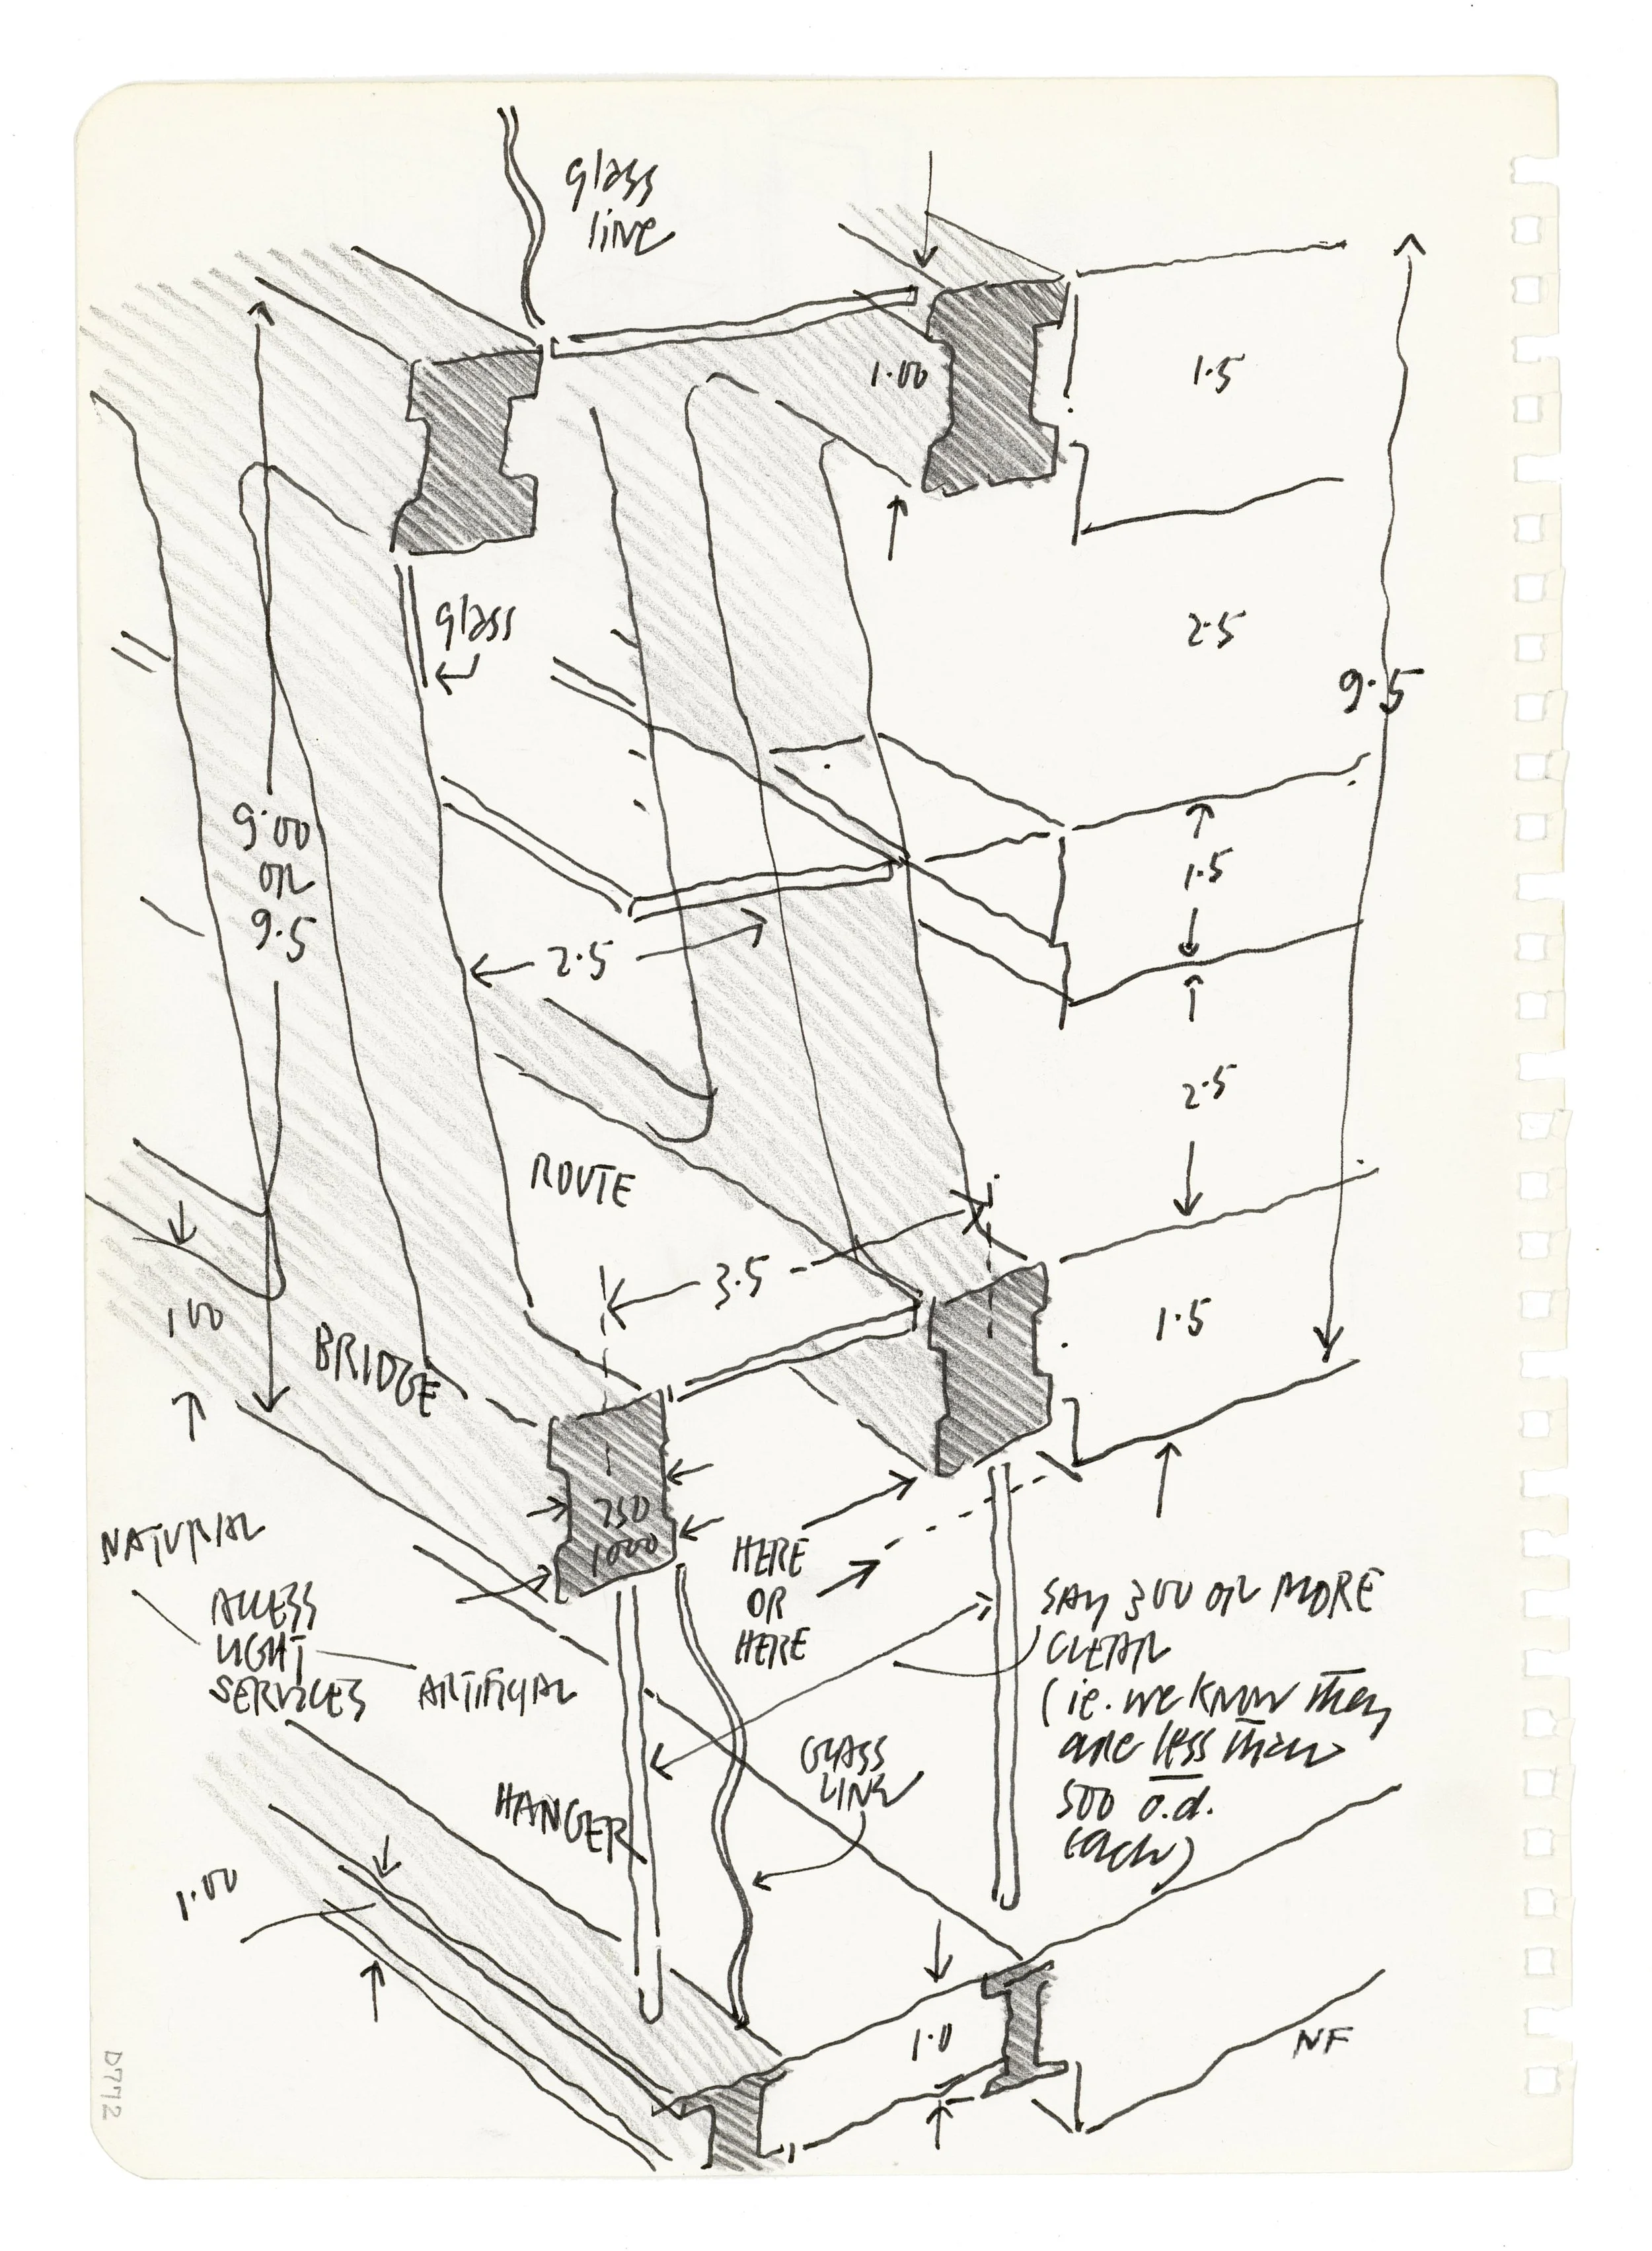 glass
line
1.00
1.5
glass
2.5
9.5
9.00
OR
9.5
1.5
2.5
2.5
ROUTE
3.5
1.00
BRIDGE
1.5
750
1000
NATURAL
HERE
OR
HERE
ACCESS
LIGHT
SERVICES
ARTIFICIAL
SAY 300 OR MORE
CLEAR
(ie. we know they
are less than
500 o.d.
each)
GLASS
LINE
HANGER
1.00
1.0
NF
D772